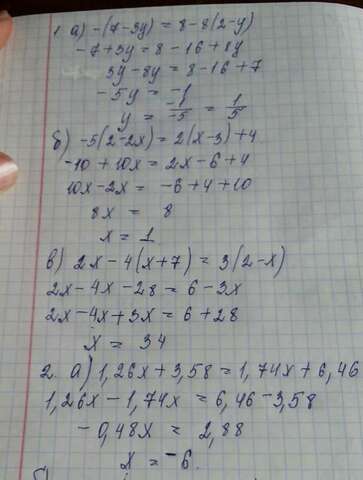 1. а) -(7-3y) = 8-8(2-y)
-7+3y = 8-16+8y
3y-8y = 8-16+7
-5y = -1
y = -1/-5 = 1/5
б) -5(2-2x) = 2(x-3)+4
-10+10x = 2x-6+4
10x-2x = -6+4+10
8x = 8
x = 1
в) 2x-4(x+7) = 3(2-x)
2x-4x-28 = 6-3x
2x-4x+3x = 6+28
x = 34
2. а) 1,26x+3,58 = 1,74x+6,46
1,26x-1,74x = 6,46-3,58
-0,48x = 2,88
x = -6.